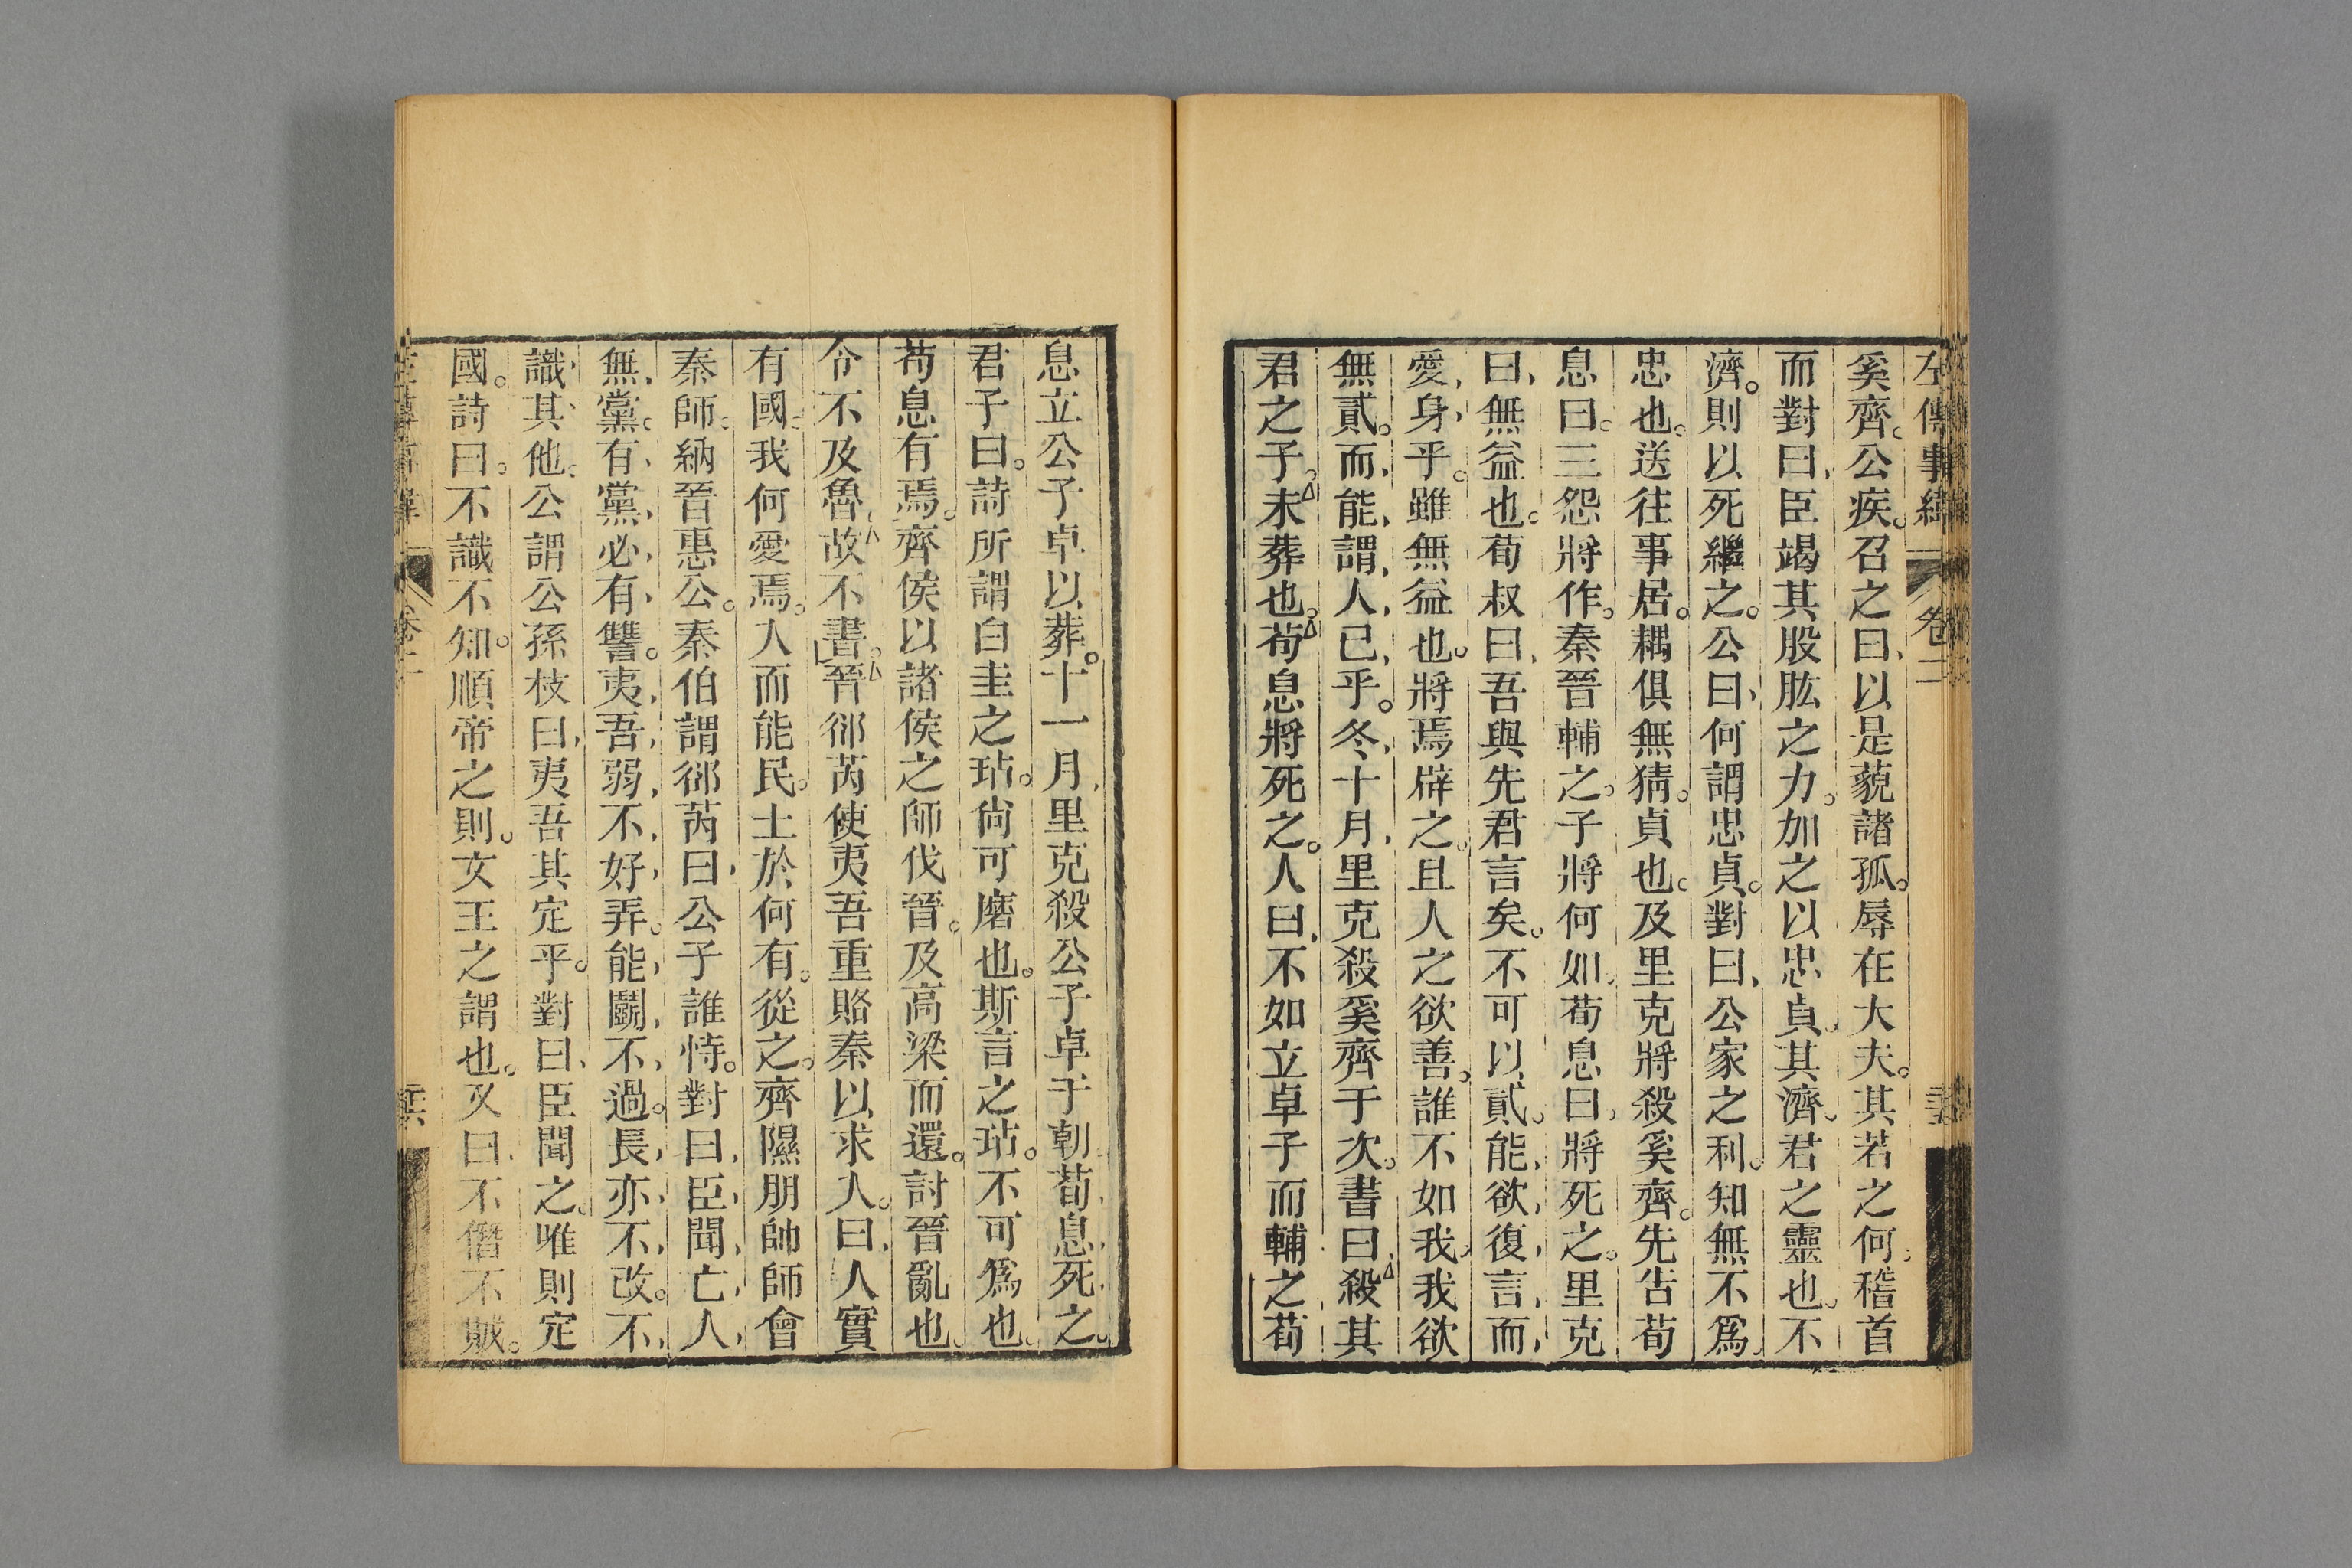 左傳事緯 卷二
奚齊。公疾。召之曰,以是藐諸孤。辱在大夫。其若之何。稽首
而對曰,臣竭其股肱之力。加之以忠貞。其濟。君之靈也。不
濟。則以死繼之。公曰,何謂忠貞。對曰,公家之利。知無不爲。
忠也。送往事居。耦俱無猜。貞也。及里克將殺奚齊。先告荀
息曰。三怨將作。秦晉輔之。子將何如。荀息曰,將死之。里克
曰,無益也。荀叔曰,吾與先君言矣。不可以貳。能,欲,復,言,而,
愛,身,乎。雖無益也。將焉辟之。且人之欲善。誰不如我。我欲
無貳。而,能,謂,人,已,乎。冬,十月,里克殺奚齊于次。書曰,殺其
君之子。未葬也。荀息將死之。人曰,不如立卓子而輔之荀
息立公子卓以葬。十一月,里克殺公子卓于朝,荀,息,死,之。
君子曰。詩所謂白圭之玷。尙可磨也。斯言之玷。不可爲也。
荀息有焉。齊侯以諸侯之師伐晉。及高梁而還。討晉亂也。
令不及魯故不書。晉郤芮使夷吾重賂秦以求人。曰,人實
有國。我何愛焉。人而能民。土於何有。從之。齊隰朋帥師會
秦師。納晉惠公。秦伯謂郤芮曰,公子誰恃。對曰,臣,聞,亡,人,
無,黨。有,黨,必,有,讐。夷,吾,弱,不,好,弄。能,鬬,不,過。長,亦,不,改。不,
識,其,他。公謂公孫枝曰,夷吾其定乎。對曰,臣聞之。唯則定
國。詩曰。不識不知。順帝之則。文王之謂也。又曰,不僭不賊。